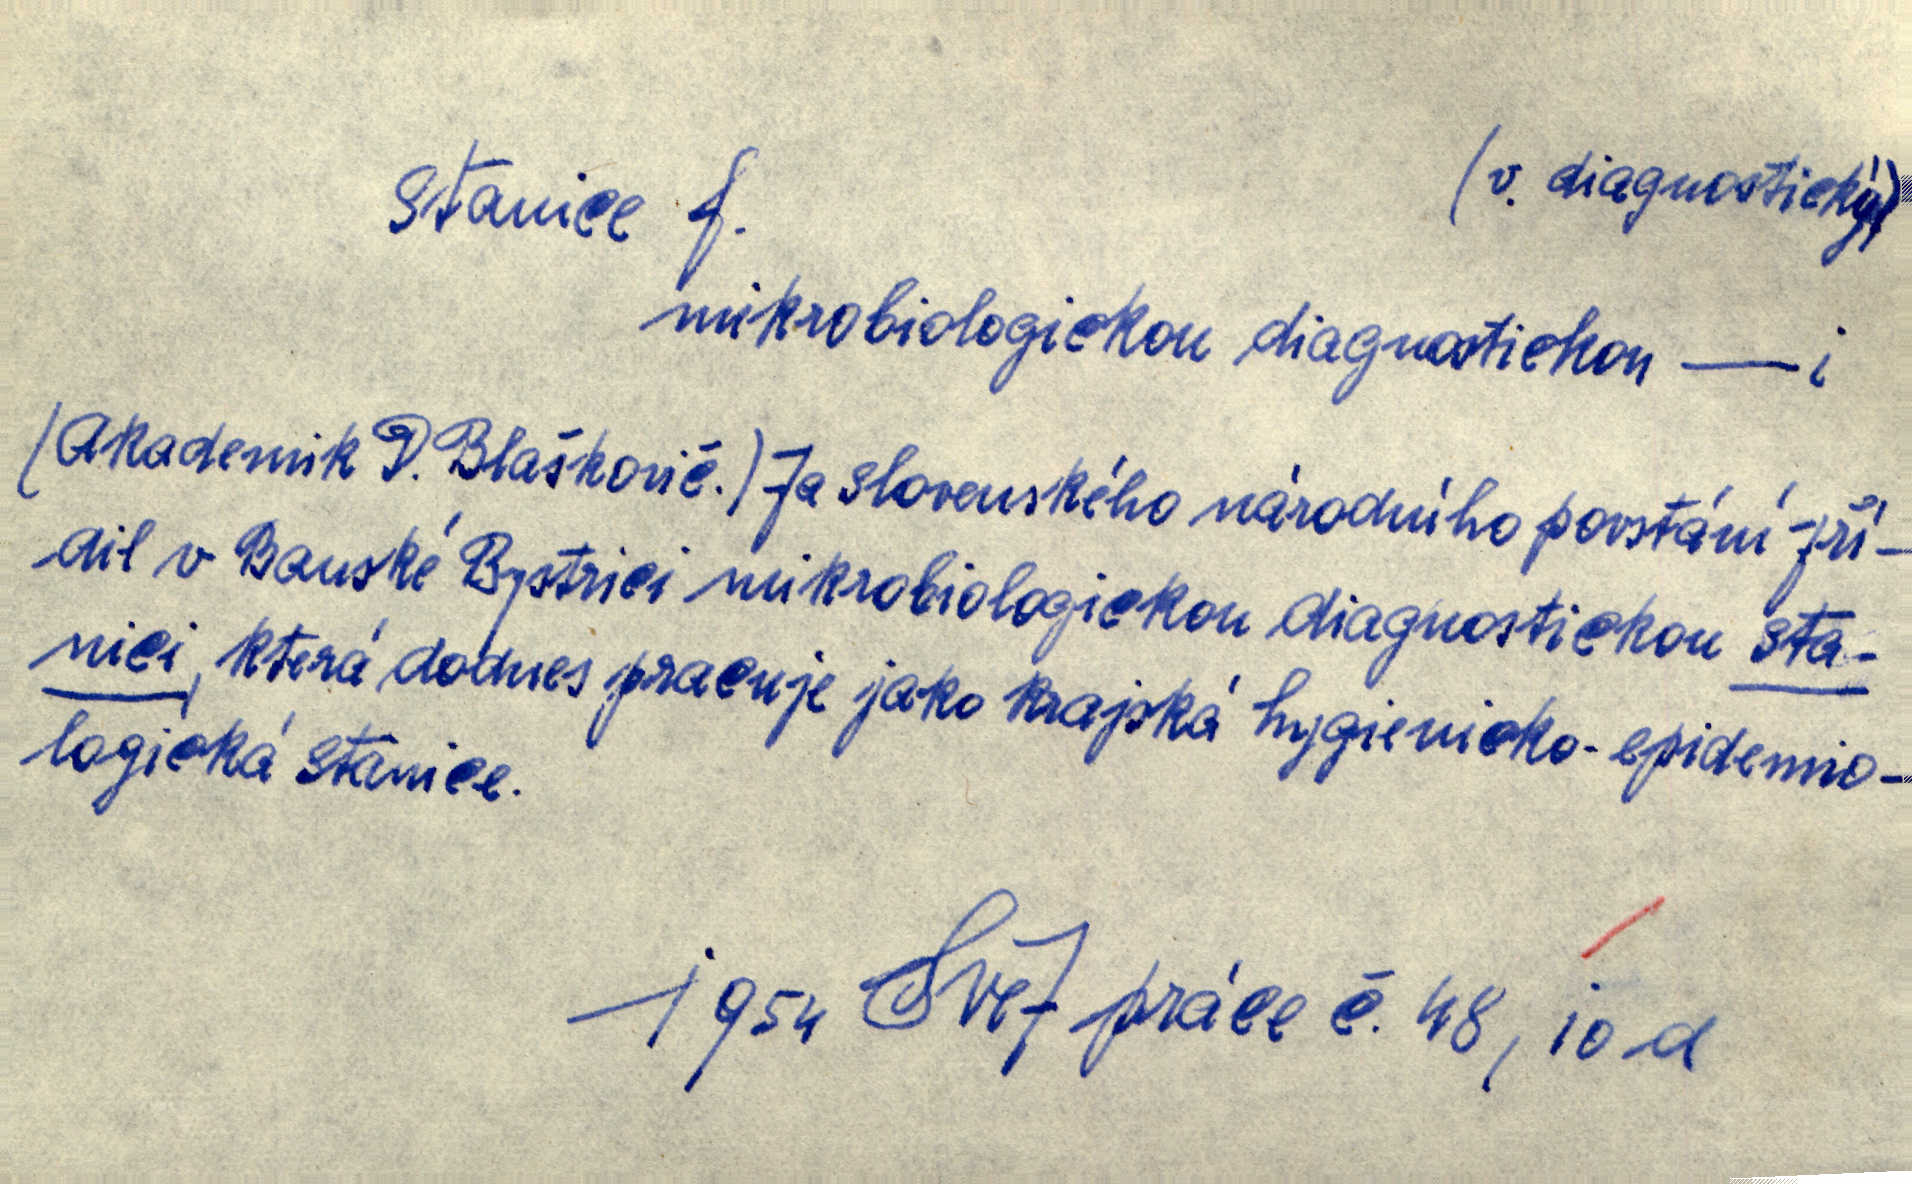 stanice f.
(v. diagnostický)
mikrobiologickou diagnostickou — i
(Akademik D. Blaškovič.) Za slovenského národního povstání zří-
dil v Banské Bystrici mikrobiologickou diagnostickou sta-
nici, která dodnes pracuje jako krajská hygienicko-epidemio-
logická stanice.
1954 Svět práce č. 48, 10 d